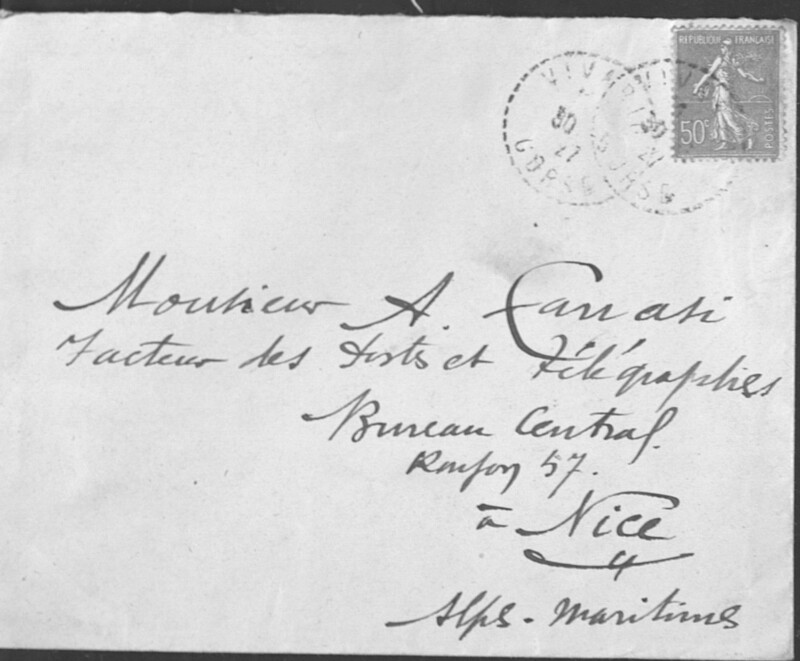 REPUBLIQUE FRANÇAISE
50c
POSTES
VIVARIO
30
27
CORSE
Monsieur A.
Facteur des Postes et Télégraphes
Bureau Central.
57.
à Nice
Alpes-Maritimes